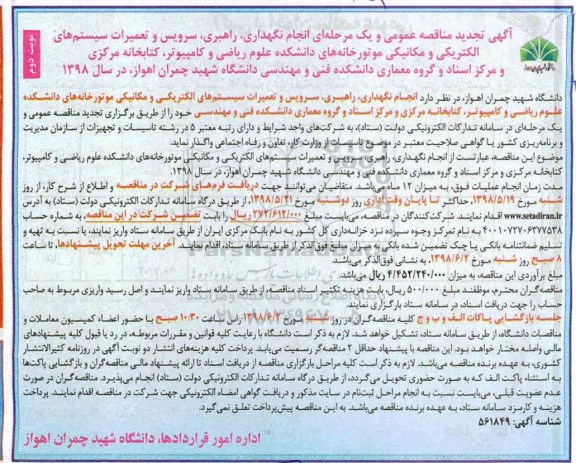 نوبت دوم
آگهی تجدید مناقصه عمومی و یک مرحله‌ای انجام نگهداری، راهبری، سرویس و تعمیرات سیستم‌های
الکتریکی و مکانیکی موتورخانه‌های دانشکده علوم ریاضی و کامپیوتر، کتابخانه مرکزی
و مرکز اسناد و گروه معماری دانشکده فنی و مهندسی دانشگاه شهید چمران اهواز، در سال ۱۳۹۸
دانشگاه شهید چمران اهواز، در نظر دارد انجام نگهداری، راهبری، سرویس و تعمیرات سیستم‌های الکتریکی و مکانیکی موتورخانه‌های دانشکده
علوم ریاضی و کامپیوتر، کتابخانه مرکزی و مرکز اسناد و گروه معماری دانشکده فنی و مهندسی خود را از طریق برگزاری تجدید مناقصه عمومی و
یک مرحله‌ای در سامانه تدارکات الکترونیکی دولت (ستاد)، به شرکت‌های واجد شرایط و دارای رتبه معتبر ۵ در رشته تاسیسات و تجهیزات از سازمان مدیریت
و برنامه‌ریزی کشور یا گواهی صلاحیت معتبر در موضوع تاسیسات از وزارت کار، تعاون و رفاه اجتماعی واگذار نماید.
موضوع این مناقصه، عبارتست از انجام نگهداری، راهبری، سرویس و تعمیرات سیستم‌های الکتریکی و مکانیکی موتورخانه‌های دانشکده علوم ریاضی و کامپیوتر،
کتابخانه مرکزی و مرکز اسناد و گروه معماری دانشکده فنی و مهندسی دانشگاه شهید چمران اهواز، در سال ۱۳۹۸.
مدت زمان انجام عملیات فوق، به میزان ۱۲ ماه می‌باشد. متقاضیان می‌توانند جهت دریافت فرم‌های شرکت در مناقصه و اطلاع از شرح کار، از روز
شنبه مورخ ۱۳۹۸/۵/۱۹، حداکثر تا پایان وقت اداری روز دوشنبه مورخ ۱۳۹۸/۵/۲۱، از طریق درگاه سامانه تدارکات الکترونیکی دولت (ستاد) به آدرس
www.setadiran.ir اقدام نمایند. شرکت‌کنندگان در مناقصه، می‌بایست مبلغ ۲۷۲/۶۱۲/۰۰۰ ریال را بابت تضمین شرکت در این مناقصه، به شماره حساب
۴۰۰۱۰۷۲۷۰۶۳۷۷۵۳۸ به نام تمرکز وجوه سپرده نزد خزانه‌داری کل کشور به نام بانک مرکزی ایران از طریق سامانه ستاد واریز نمایند، یا نسبت به تهیه و
تسلیم ضمانتنامه بانکی یا چک تضمین شده بانکی به میزان مبلغ فوق الذکر از طریق سامانه ستاد، اقدام نمایند. آخرین مهلت تحویل پیشنهادها، تا ساعت
۸ صبح روز شنبه مورخ ۱۳۹۸/۶/۲، به نشانی فوق‌الذکر می‌باشد.
مبلغ برآوردی این مناقصه، به میزان ۴/۴۵۲/۲۴۰/۰۰۰ ریال می‌باشد.
مناقصه‌گران محترم، موظفند مبلغ ۵۰۰/۰۰۰ ریال، بابت هزینه تکثیر اسناد مناقصه، از طریق سامانه ستاد واریز نمایند و اصل رسید واریزی مربوط به صاحب
حساب را جهت دریافت اسناد، در سامانه ستاد بارگزاری نمایند.
جلسه بازگشایی پاکات الف و ب و ج کلیه مناقصه‌گران در روز شنبه مورخ ۱۳۹۸/۶/۲ راس ساعت ۱۰:۳۰ صبح با حضور اعضاء کمیسیون معاملات و
مناقصات دانشگاه، از طریق سامانه ستاد، تشکیل خواهد شد. لازم به ذکر است دانشگاه با رعایت کلیه قوانین و مقررات مربوطه، در رد یا قبول کلیه پیشنهادهای
مالی واصله مختار خواهد بود. این مناقصه با پیشنهاد حداقل ۲ مناقصه‌گر رسمیت می‌یابد. پرداخت کلیه هزینه‌های انتشار دو نوبت آگهی در روزنامه کثیرالانتشار
کشوری، به عهده برنده مناقصه می‌باشد. لازم به ذکر است کلیه مراحل بارگزاری مناقصه از دریافت اسناد تا ارائه پیشنهاد مالی مناقصه‌گران و بازگشایی پاکت‌ها
به استثناء پاکت الف که به صورت حضوری تحویل می‌گردد، از طریق درگاه سامانه تدارکات الکترونیکی دولت (ستاد) انجام می‌پذیرد. مناقصه‌گران در صورت
عدم عضویت قبلی، می‌بایست نسبت به انجام مراحل ثبت‌نام در سایت مذکور و دریافت گواهی امضاء الکترونیکی جهت شرکت در مناقصه اقدام نمایند. پرداخت
هزینه و کارمزد سامانه ستاد، به عهده برنده مناقصه می‌باشد. به این مناقصه پیش‌پرداخت تعلق نمی‌گیرد.
شناسه آگهی: ۵۶۱۸۴۹
اداره امور قراردادها، دانشگاه شهید چمران اهواز